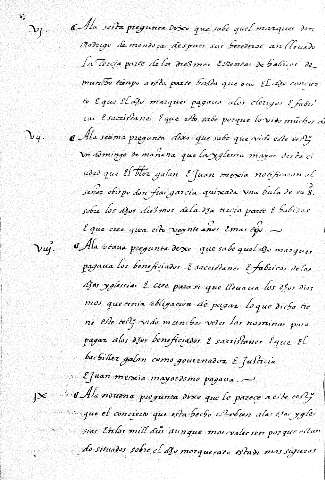 VI. A la sesta pregunta dixo que sabe quel marques don
Rodrigo de mendoça despues sus herederos an lleuado
la tercia parte de los diezmos
mucho tiempo a esta parte hasta que
E que El dho marques pagaua a los clerigos E fabri
cas E sacristanes E que esto sabe porque lo vido muchos
VII. A la setima pregunta dixo que sabe que vido este testigo
vn domingo de mañana que la yglesia mayor
El bachiller galan E Juan mexia notificaron al
señor obispo don frai garcia quixada vna bula de su
sobre los dhos diezmos de la dha tercia parte E
E que cree que a veynte años E mas
VIII. A la otaua pregunta dixo que sabe quel dho marques
pagaua los beneficiados E sacristanes E fabricas de las
dhas yglesias E cree para que lleuaua los dhos diez
mos que tenia obligacion de pagar lo que dicho tie
ne este testigo vido muchas vezes las nominas para
pagar a los dhos beneficiados E sacristanes E que El
bachiller galan como gouernador E Justicia
E Juan mexia mayordomo pagaua
IX A la nouena pregunta dixo que le parece a este testigo
que el concierto que esta hecho las yglesias
En los mill aunque mas valiesen porque estan
do situados sobre el dho marquesado estan mas seguros